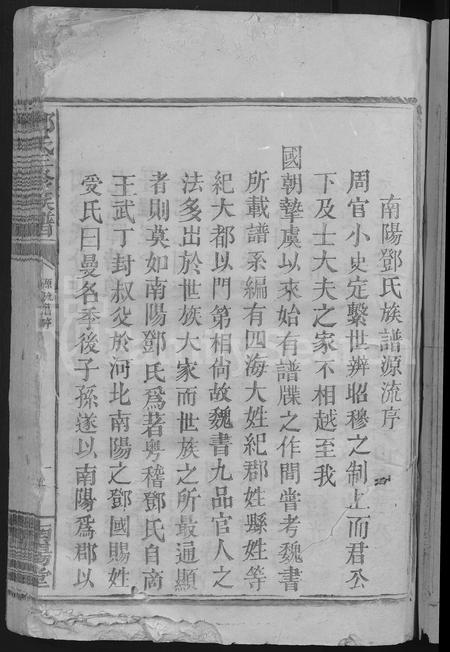 南陽鄧氏族譜源流序
周官小史定繫世辨昭穆之制上而君公
下及士大夫之家不相越至我
國朝摯虞以來始有譜牒之作間嘗考魏書
所載譜系編有四海大姓紀郡姓縣姓等
紀大都以門第相尙故魏書九品官人之
法多出於世族大家而世族之所最通顯
者則莫如南陽鄧氏爲著粤稽鄧氏自商
王武丁封叔父於河北南陽之鄧國賜姓
受氏曰曼名季後子孫遂以南陽爲郡以
鄧氏三修族譜
源流舊序
南陽堂